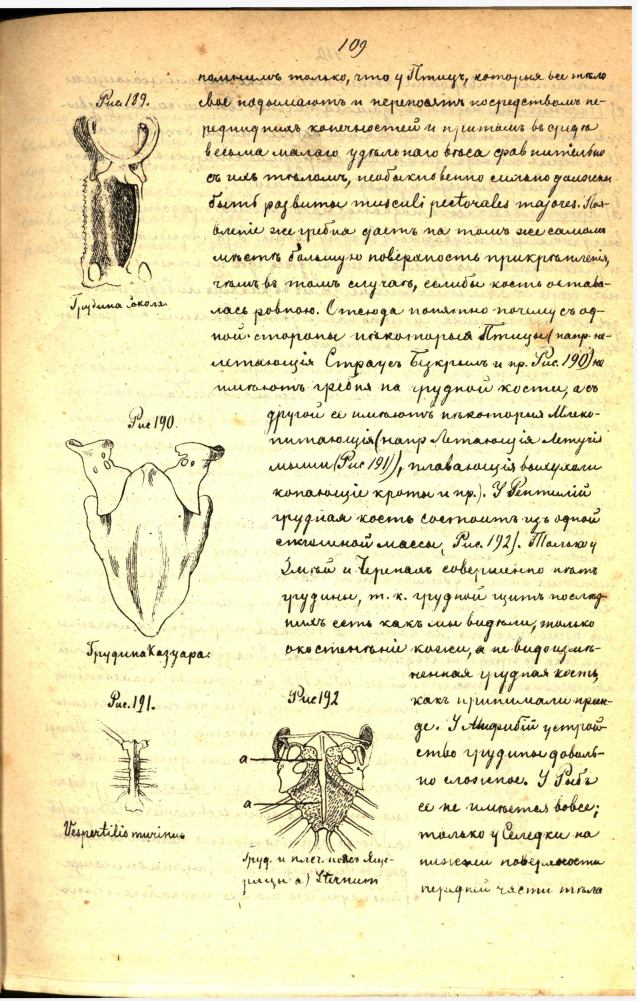 109
помнимъ только, что у Птицъ, которыя все тѣло
свое подымаютъ и переносятъ посредствомъ пе-
реднихъ конечностей и притомъ въ средѣ
весьма малаго удѣльнаго вѣса сравнительно
съ ихъ тѣломъ, необыкновенно сильно должны
быть развиты musculi pectorales majores. Поя-
вленіе же гребня даетъ на томъ же самомъ
мѣстѣ большую поверхность прикрѣпленія,
чѣмъ въ томъ случаѣ, еслибы кость остава-
лась ровною. Отсюда понятно почему съ од-
ной стороны нѣкоторыя Птицы (напр. не-
летающія Страусъ Безкрылъ и пр. Рис. 190) не
имѣютъ гребня на грудной кости, а съ
другой ее имѣютъ нѣкоторыя Млеко-
питающія (напр Летающія Летучія
мыши (Рис 191)), плавающія выхухоли
копающіе кроты и пр.). У Рептилій
грудная кость состоитъ изъ одной
сплошной массы, Рис. 192). Только у
Змѣй и Черепахъ совершенно нѣтъ
грудины, т. к. грудной щитъ послѣд-
нихъ есть какъ мы видѣли, только
окостенѣніе кожи, а не видоизмѣ-
ненная грудная кость,
какъ принимали преж-
де. У Амфибій устрой-
ство грудины доволь-
но сложное. У Рыбъ
ее не имѣется вовсе;
только у Селедки на
нижней поверхности
передней части тѣла
Рис 189.
Грудина Сокола.
Рис 190.
Грудина Казуара.
Рис. 191.
Vespertilio murinus
Рис 192
а
а
Груд. и плеч. поясъ Яще-
рицы а) Sternum